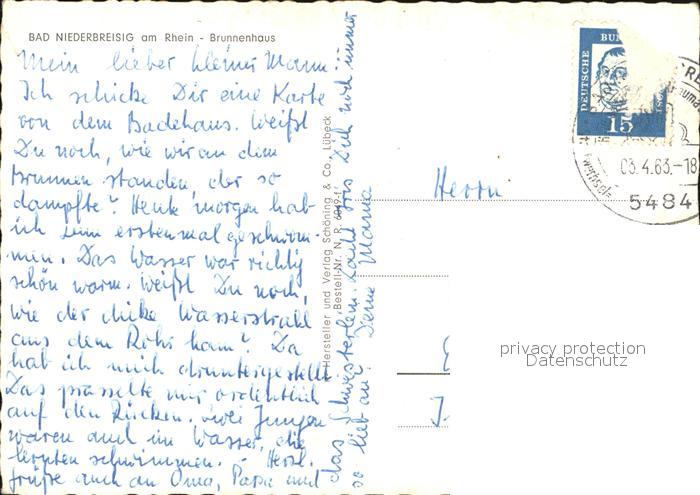 BAD NIEDERBREISIG am Rhein - Brunnenhaus
Mein lieber kleiner Mann!
Ich schicke Dir eine Karte
von dem Badehaus. Weißt
Du noch, wie wir an dem
Brunnen standen, der so
dampfte? Heute morgen hab
ich zum erstenmal geschwom-
men. Das Wasser war richtig
schön warm. Weißt Du noch,
wie der dicke Wasserstrahl
aus dem Rohr kam? Da
hab ich mich druntergestellt
Das prasselte mir ordentlich
auf den Rücken. Zwei Jungen
waren auch im Wasser, die
lernten schwimmen. - Herzl.
Grüße auch an Oma, Papa und
das Schwesterlein. Lacht Dich noch immer
so lieb an? Deine Mama
Hersteller und Verlag Schöning & Co., Lübeck
Bestell-Nr. N. R.
Herrn
DEUTSCHE BUN
15
03.4.63.-18
5484
privacy protection
Datenschutz